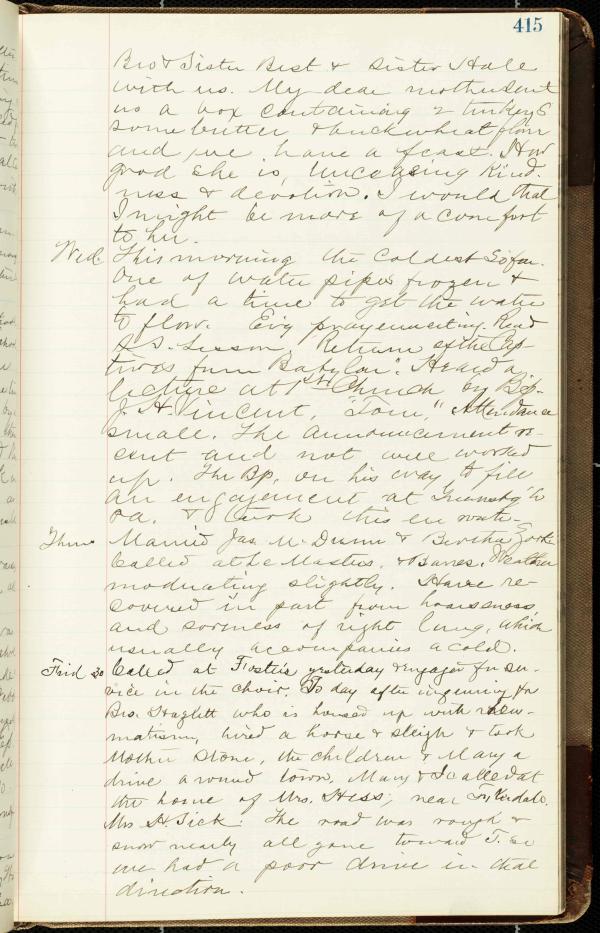 415
Bro & Sister Best & Sister Hall
with us. My dear mother sent
us a box containing 2 turkeys
some butter & buckwheat flour
and we have a feast. How
good she is, unceasing kind-
ness & devotion. I would that
I might be more of a comfort
to her.
Wed. This morning the coldest so far.
One of water pipes frozen &
had a time to get the water
to flow. Ev'g prayermeeting. Read
S.S. Lesson "Return of the Cap-
tives from Babylon". Heard a
lecture at 1st Church by Bp.
J. H. Vincent, "Tom," Attendance
small. The announcement re-
cent and not well worked
up. The Bp, on his way to fill
an engagement at
Pa. & took this en route.
Thurs Married Jas. McDunn & Bertha
Called at the Masters, & Barres. Weather
moderating slightly. Have re-
covered in part from hoarseness
and soreness of right lung, which
usually accompanies a cold.
Frid 30 Called at Fosters yesterday & engaged for ser-
vice in the choir. To day after inquiring for
Bro. Haslett who is housed up with rheu-
matism, hired a horse & sleigh & took
Mother Stone, the children & Mary a
drive around town. Mary & I called at
the home of Mrs. Hess, near
Mrs H. Sick. The road was rough &
snow nearly all gone toward F. so
we had a poor drive in that
direction.